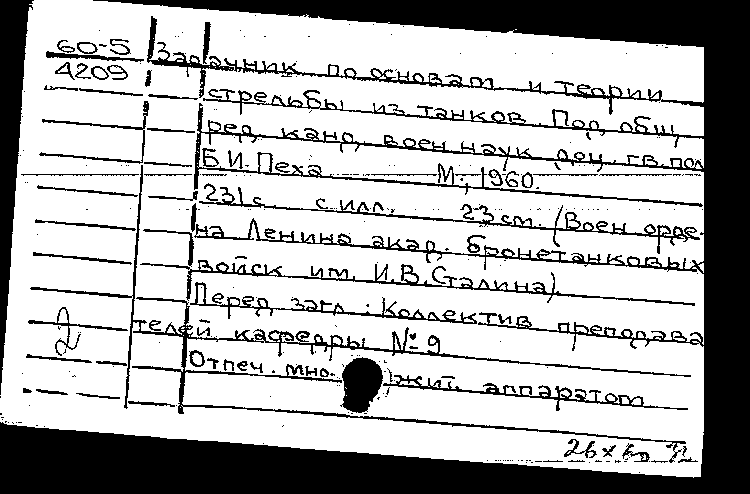 60-5 Задачник по основам и теории
4209 стрельбы из танков. Под общ.
ред. канд. воен наук доц. гв. пол
Б.И. Пеха М., 1960.
231 с. с илл. 23 см. (Воен орде-
на Ленина акад. бронетанковых
войск им. И.В. Сталина).
Перед загл.: Коллектив преподава
телей кафедры № 9
Отпеч. мно жит. аппаратом
2